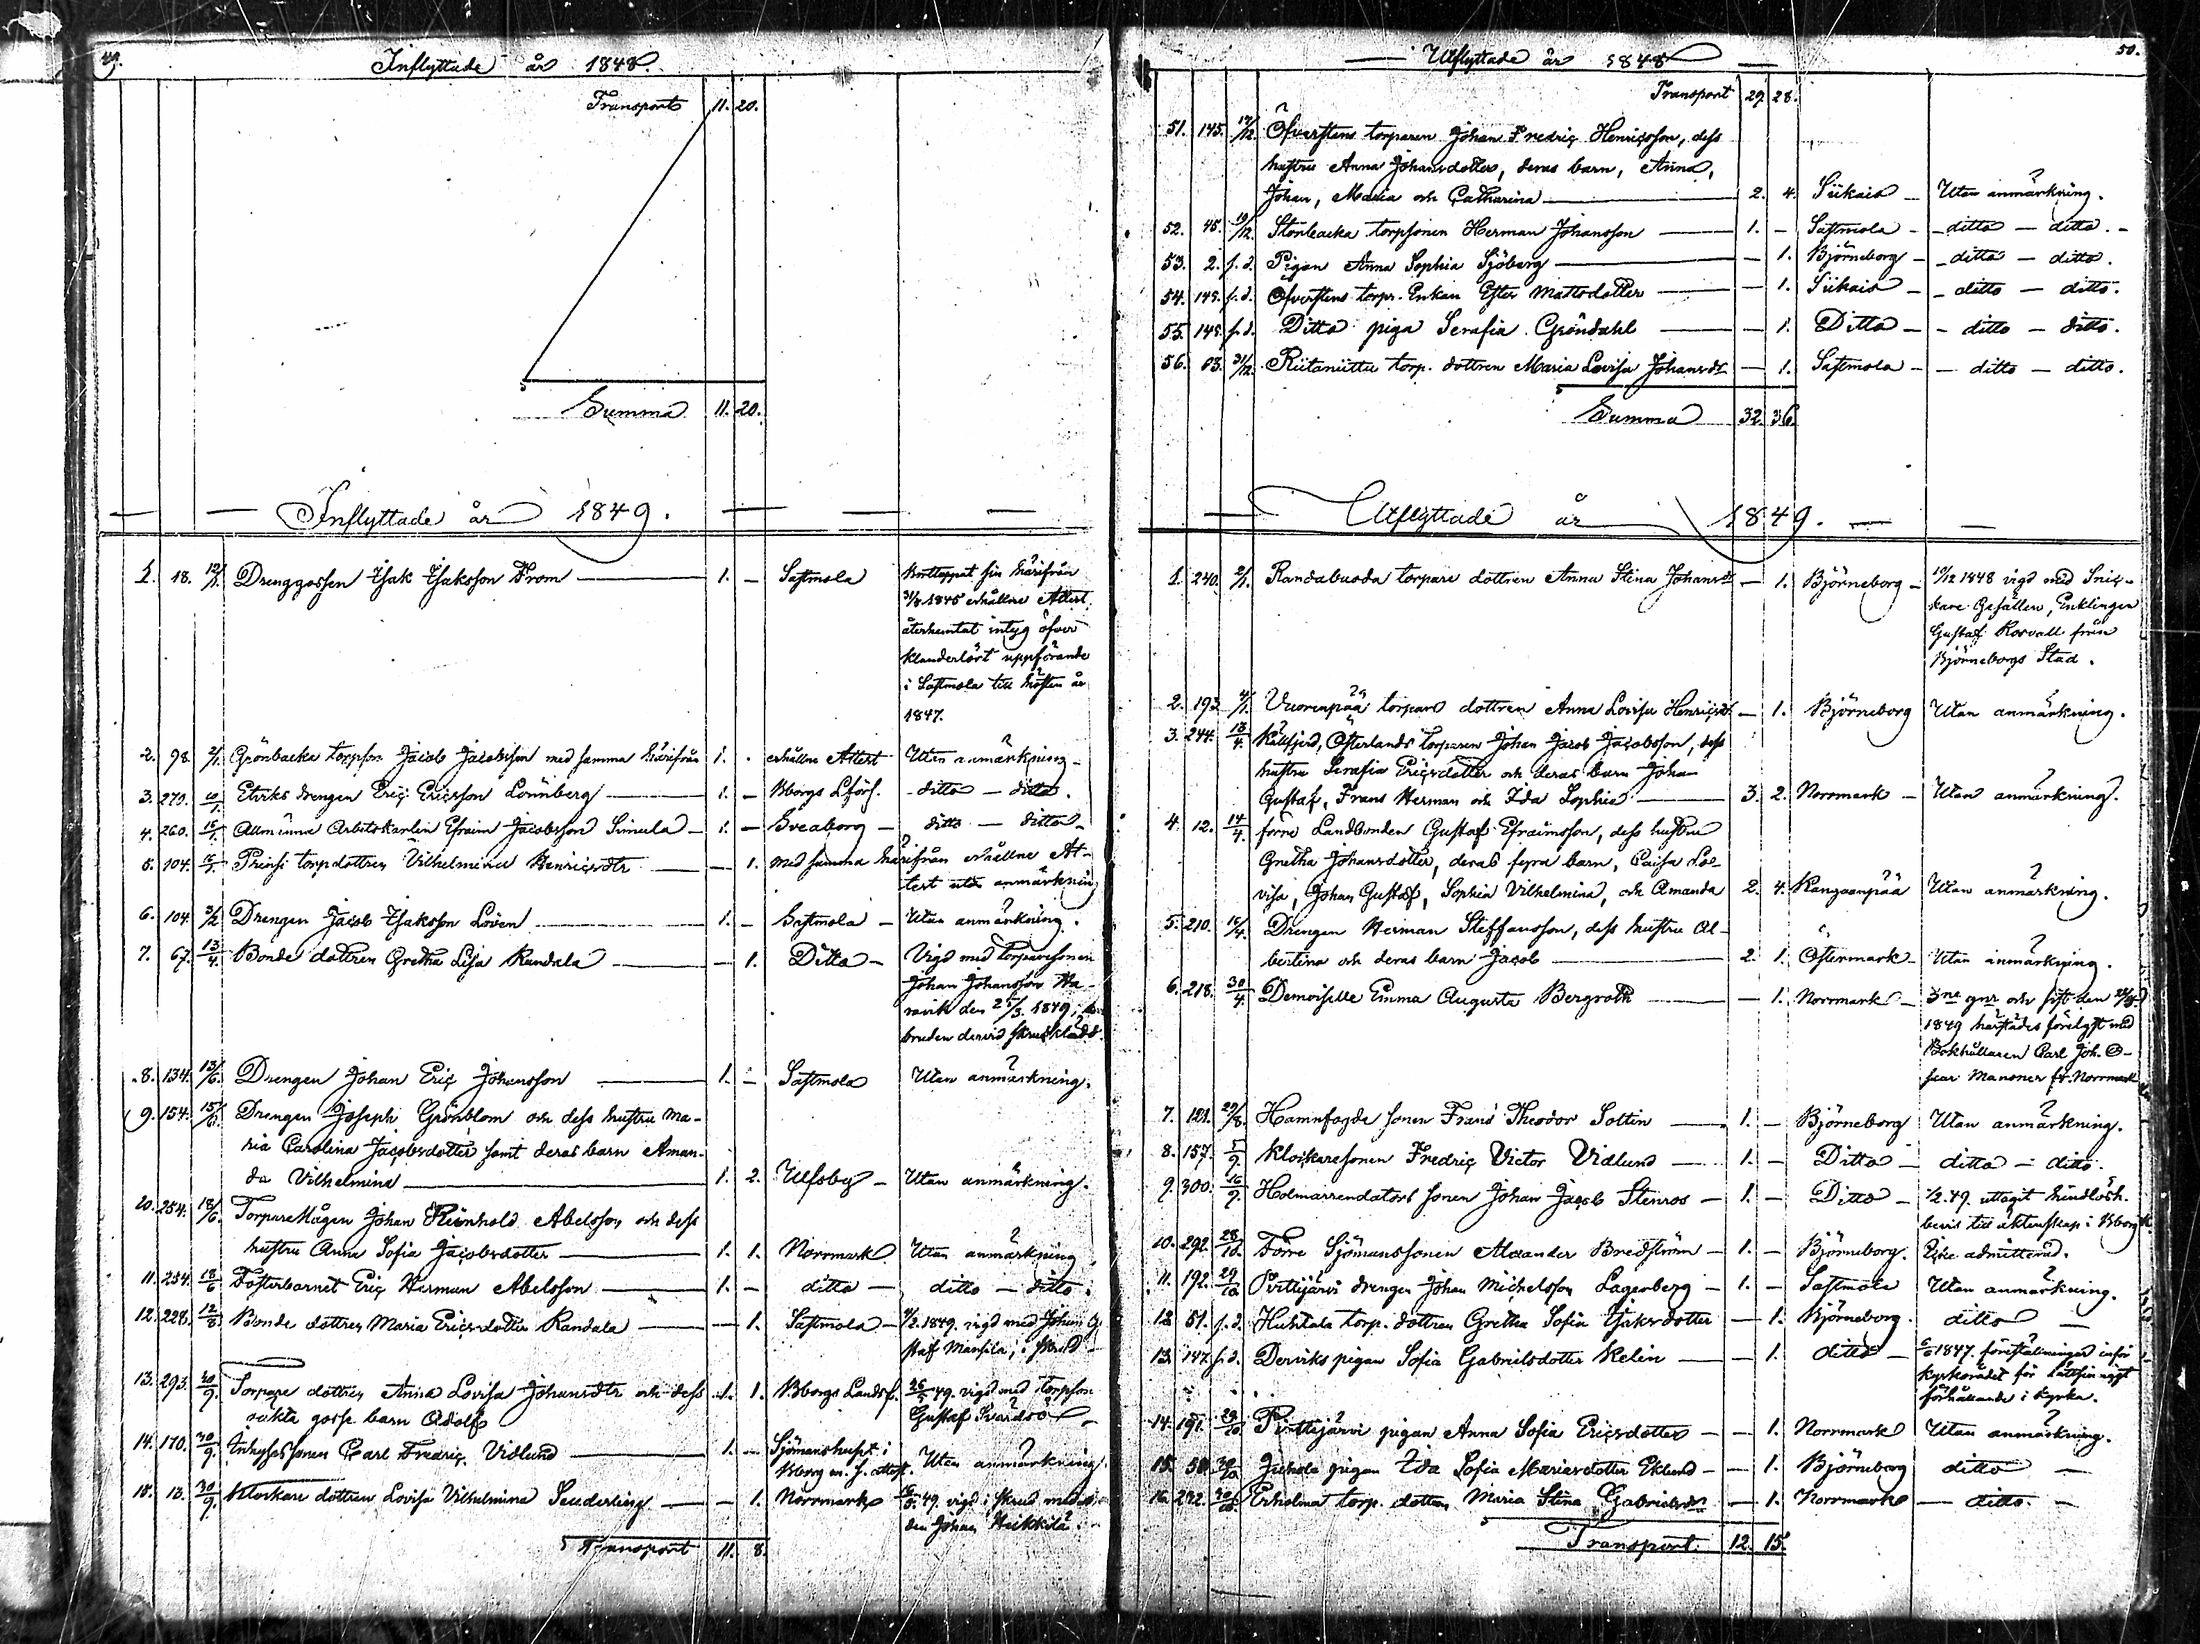 49.
Inflyttade år 1848.
Transport 11. 20.
Summa 11. 20.
Inflyttade år 1849.
1. 18. 12/1. Drenggossen Isak Isaksson From 1. – Sastmola
sin härifrån
31/8 1845 erhållne Attest,
återhemtat intyg öfver
klanderlöst uppförande
i Sastmola till hösten år
1847.
2. 98. 2/1. Grönbacka torpson Jacob Jacobsson med samma härifrån 1. – erhållne Attest Utan anmärkning –
3. 270. Etviks drengen Eriç Ericsson Lönnberg 1. – Bborgs Lförs. ditto – ditto.
4. 260. 16/1. Allmänne Arbetskarlen Efraim Jacobsson Simula 1. – Sveaborg – ditto – ditto –
5. 104. Prinsi torpdottren Vilhelmina Henriçsdtr – 1. med samma härifrån erhållne At-
test utan anmärkning
6. 104. 3/2 Drengen Jacob Isaksson Lovén 1. – Sastmola – Utan anmärkning.
7. 67. 13/4 Bonde dottren Gretha Lisa Randala – 1. Ditto – Vigd med torparesonen
Johan Johansson Ha-
ravik den 25/3. 1849;
bruden dervid skrudklädd.
8. 134. 13/6. Drengen Johan Eriç Johansson 1. – Sastmola Utan anmärkning.
9. 154. 15/6. Drengen Joseph Grönblom och dess hustru Ma-
ria Carolina Jaçobsdotter samt deras barn Aman-
da Vilhelmina 1. 2. Ulfsby – Utan anmärkning.
10. 254. 18/6. Torpare Mågen Johan Reinhold Abelsson och dess
hustru Anna Sofia Jaçobsdotter 1. 1. Norrmark Utan anmärkning
11. 254. 18/6 Fosterbarnet Eriç Herman Abelsson 1. – ditto – ditto – ditto.
12. 228. 12/8 Bonde dottren Maria Eriçsdotter Randala – 1. Sastmola – 4/2. 1849. vigd med Johan G
staf Mansila, i skrud –
13. 293. 20/9. Torpare dottren Anna Lovisa Johansdtr och dess 1. 1. Bborgs Landsf. 26/ 49. vigd med torpson
oäkta gosse barn Adolf Gustaf Svärdsö
14. 170. 30/9. Inhyses sonen Carl Fredriç Vidlund 1. – Sjömanshuset i
Bborg m. s. attest. Utan anmärkning
15. 13. 30/9. Klockare dottren Lovisa Vilhelmina Senderling – 1. Norrmark 49. vigd i skrud med
den Johan Heikkilä.
Transport 11. 8.
50.
Utflyttade år 1848
Transport 29. 28.
51. 145. 17/12. Öfverstens torparen Johan Fredriç Henriçsson, dess
hustru Anna Johansdotter, deras barn, Anna,
Johan, Maria och Catharina 2. 4. Siikais – Utan anmärkning.
52. 45. 19/12. Storbacka torpsonen Herman Johansson 1. – Sastmola – ditto – ditto. –
53. 2. s. d. Pigan Anna Sophia Sjöberg – 1. Björneborg – ditto – ditto.
54. 145. s. d. Öfverstens torpr. Enkan Ester Mattsdotter – 1. Siikais – ditto – ditto.
55. 145. s. d. Ditto piga Serafia Gröndahl – 1. Ditto – ditto – ditto.
56. 83. 31/12. Riitaniittu torp. dottren Maria Lovisa Johansdr – 1. Sastmola – ditto – ditto.
Summa 32. 36.
Utflyttade år 1849.
1. 240. 2/1. Randabuoda torpare dottren Anna Stina Johansdr – 1. Björneborg – 10/12 1848 vigd med Sniç-
kare Gesällen, Enklingen
Gustaf Rosvall från
Björneborgs Stad.
2. 193. 4/1. Vuorenpää torpare dottren Anna Lovisa Henriçsdr – 1. Björneborg Utan anmärkning.
3. 244. 13/4. Källfjerd, Österlands torparen Johan Jacob Jaçobsson, dess
hustru Serafia Eriçsdotter och deras barn Johan
Gustaf, Frans Herman och Ida Sophia 3. 2. Norrmark – Utan anmärkning.
4. 12. 14/4. förne Landbonden Gustaf Efraimsson, dess hustru
Gretha Johansdotter, deras fyra barn, Caisa Lo-
visa, Johan Gustaf, Sophia Vilhelmina, och Amanda 2. 4. Kangaanpää Utan anmärkning.
5. 210. 16/4. Drengen Herman Steffansson, dess hustru Al-
bertina och deras barn Jaçob 2. 1. Östermark – Utan anmärkning.
6. 218. 30/4. Demoiselle Emma Augusta Bergroth – 1. Norrmark – 3ne gnr och sist den
1849 härstädes förelyst med
Bokhållaren Carl Joh. O-
scar Mansner fr. Norrmark
7. 121. 29/8. Hamnfogde sonen Frans Theodor Sottin 1. – Björneborg Utan anmärkning.
8. 157. 5/9. Klockaresonen Fredriç Victor Vidlund 1. – Ditto – ditto – ditto.
9. 300. 16/9. Holmarrendators sonen Johan Jaçob Stenros 1. – Ditto – 1/2. 49. uttagit hinderlösh.
bevis till äktenskap i Bborg
10. 292. 28/10. Förre Sjömanssonen Alexander Bredström 1. – Björneborg. Icke admitterad.
11. 192. 29/10 Pirttijärvi drengen Johan Michelsson Lagerberg 1. – Sastmola Utan anmärkning.
12. 51. s. d. Huhtala torp. dottren Gretha Sofia Isaksdotter – 1. Björneborg. ditto –
13. 147. s. d. Derviks pigan Sofia Gabrielsdotter Kelin – 1. ditto – 1847. föreställningar inför
kyrkorådet för lättsinnigt
förhållande i kyrka.
14. 191. 29/10 Pirttijärvi pigan Anna Sofia Eriçsdotter – 1. Norrmark Utan anmärkning.
15. 50. 30/10 Juhola pigan Ida Sofia Mariasdotter Eklund – 1. Björneborg ditto –
16. 272. 30/10. Erholma torp. dottren Maria Stina Gabrielsdr – 1. Norrmark – ditto. –
Transport. 12. 15.